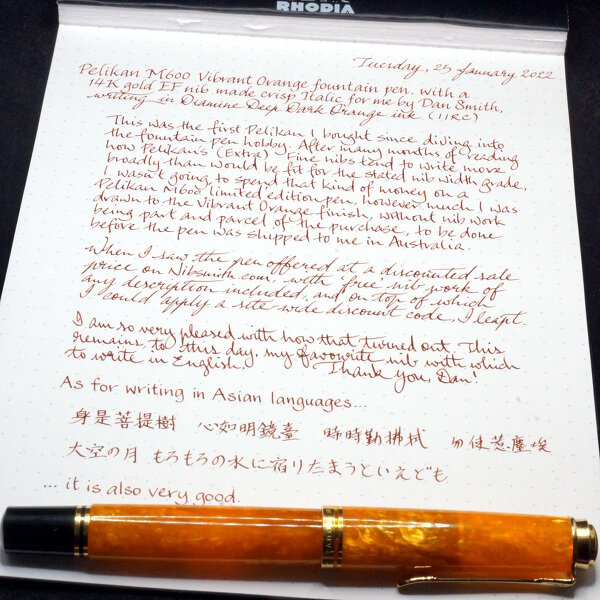 RHODIA
Tuesday, 25 January 2022
Pelikan M600 Vibrant Orange fountain pen, with a
14K gold EF nib made crisp Italic for me by Dan Smith,
writing in Diamine Deep Dark Orange ink (IIRC)
This was the first Pelikan I bought since diving into
the fountain pen hobby. After many months of reading
how Pelikan's (Extra) Fine nibs tend to write more
broadly than would be fit for the stated nib width grade,
I wasn't going to spend that kind of money on a
Pelikan M600 limited edition pen, however much I was
drawn to the Vibrant Orange finish, without nib work
being part and parcel of the purchase, to be done
before the pen was shipped to me in Australia.
When I saw the pen offered at a discounted sale
price on Nibsmith.com, with 'free' nib work of
any description included, and on top of which
I could apply a site-wide discount code, I leapt.
I am so very pleased with how that turned out. This
remains, to this day, my favourite nib with which
to write in English. Thank you, Dan!
As for writing in Asian languages...
身是菩提樹 心如明鏡臺 時時勤拂拭 勿使惹塵埃
大空の月 もろもろの水に宿りたまうといえども
... it is also very good.